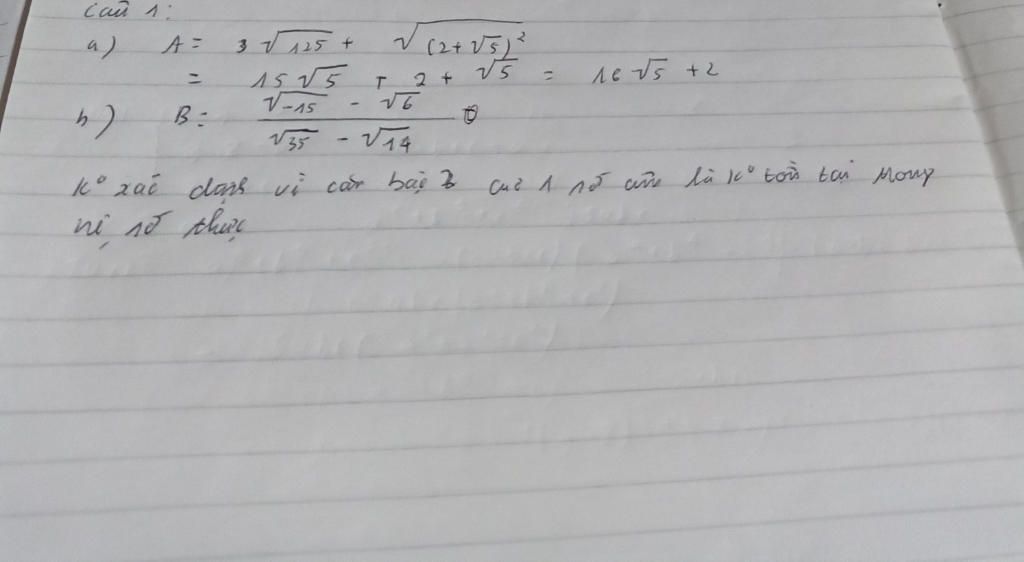 Câu 1:
a) A = 3√125 + √(2+√5)²
= 15√5 + 2 + √5 = 16√5 + 2
b) B = (√-15 - √6) / (√35 - √14)
K° xác định vì căn bậc 2 của 1 số âm là K° tồn tại trong
hệ số thực